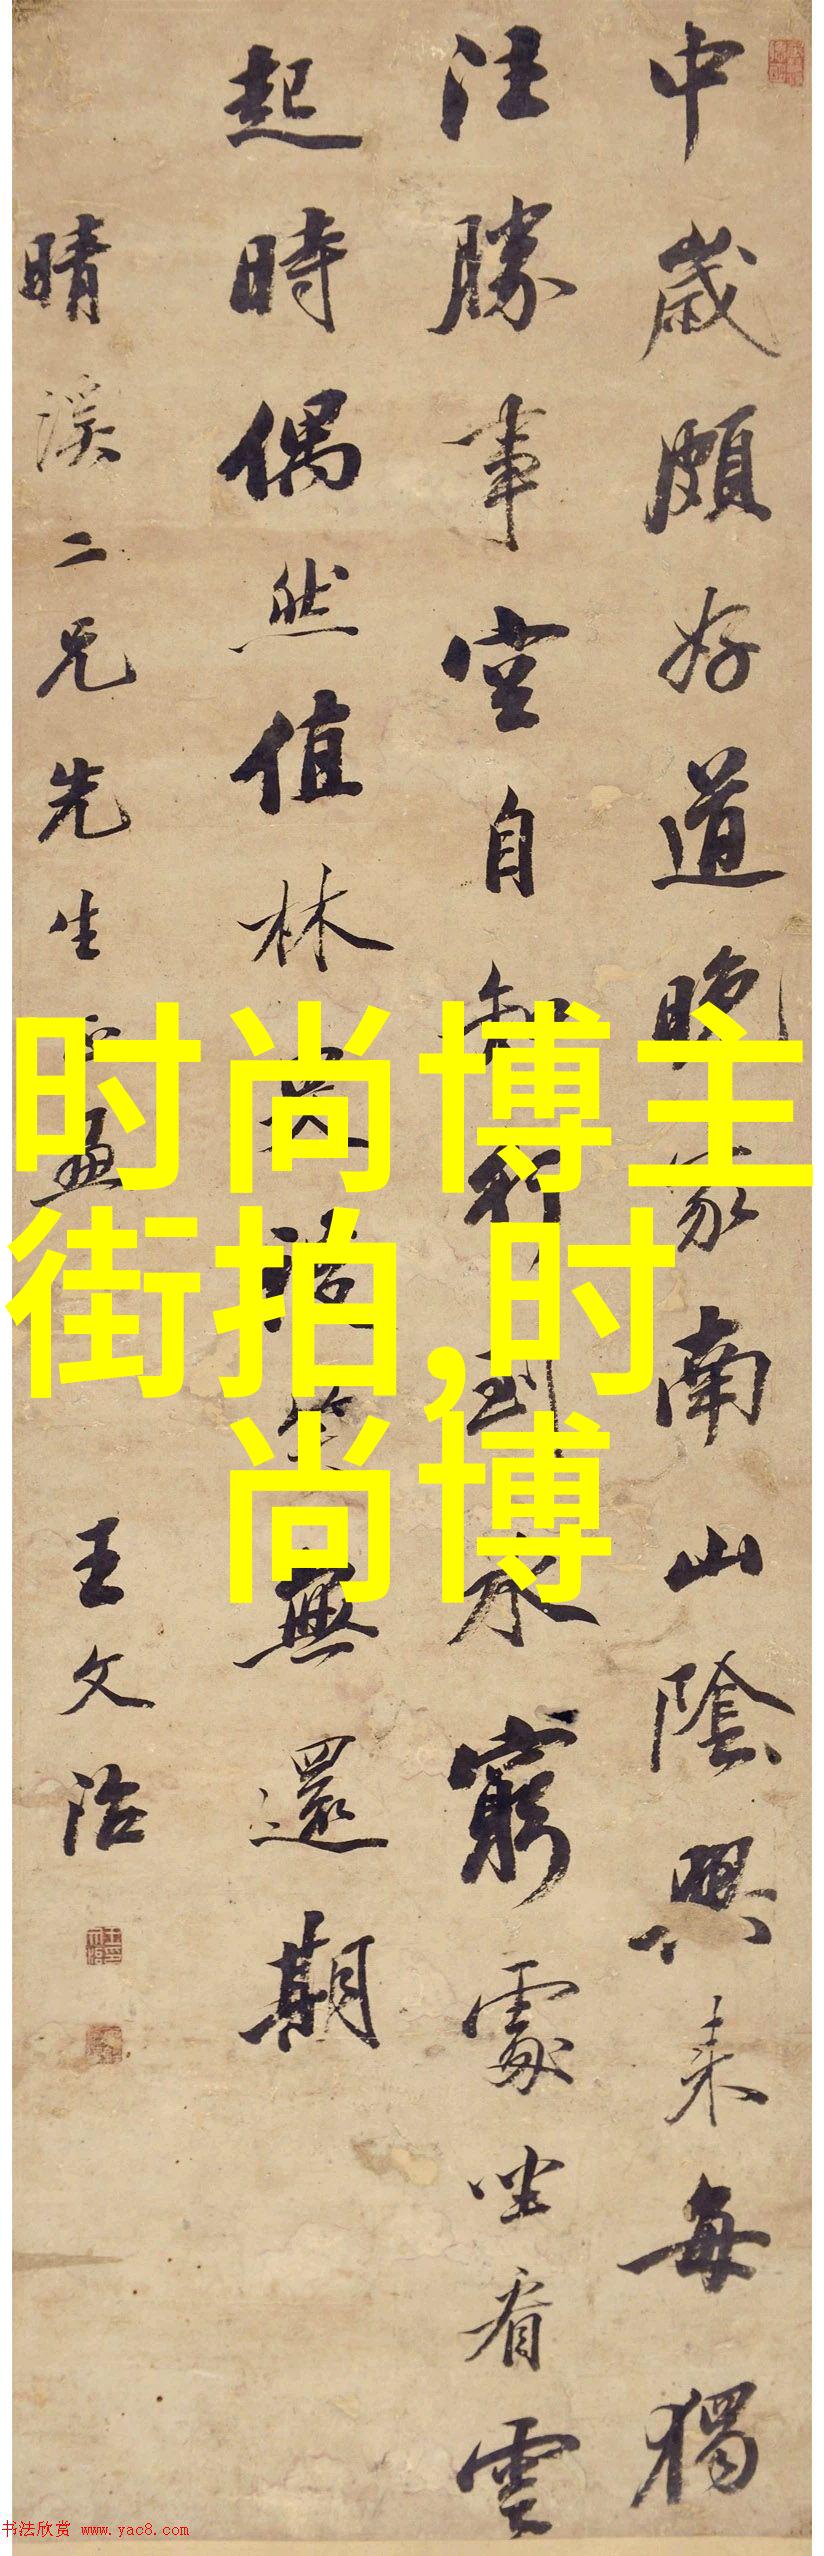 中歲頗好道晚家南山陰興来每獨
往勝事空自知行到水窮處坐看雲
起時偶然值林叟談笑無還期
晴溪二兄先生 王文治
时尚博主
街拍,时
尚博
书法欣赏 www.yac8.com